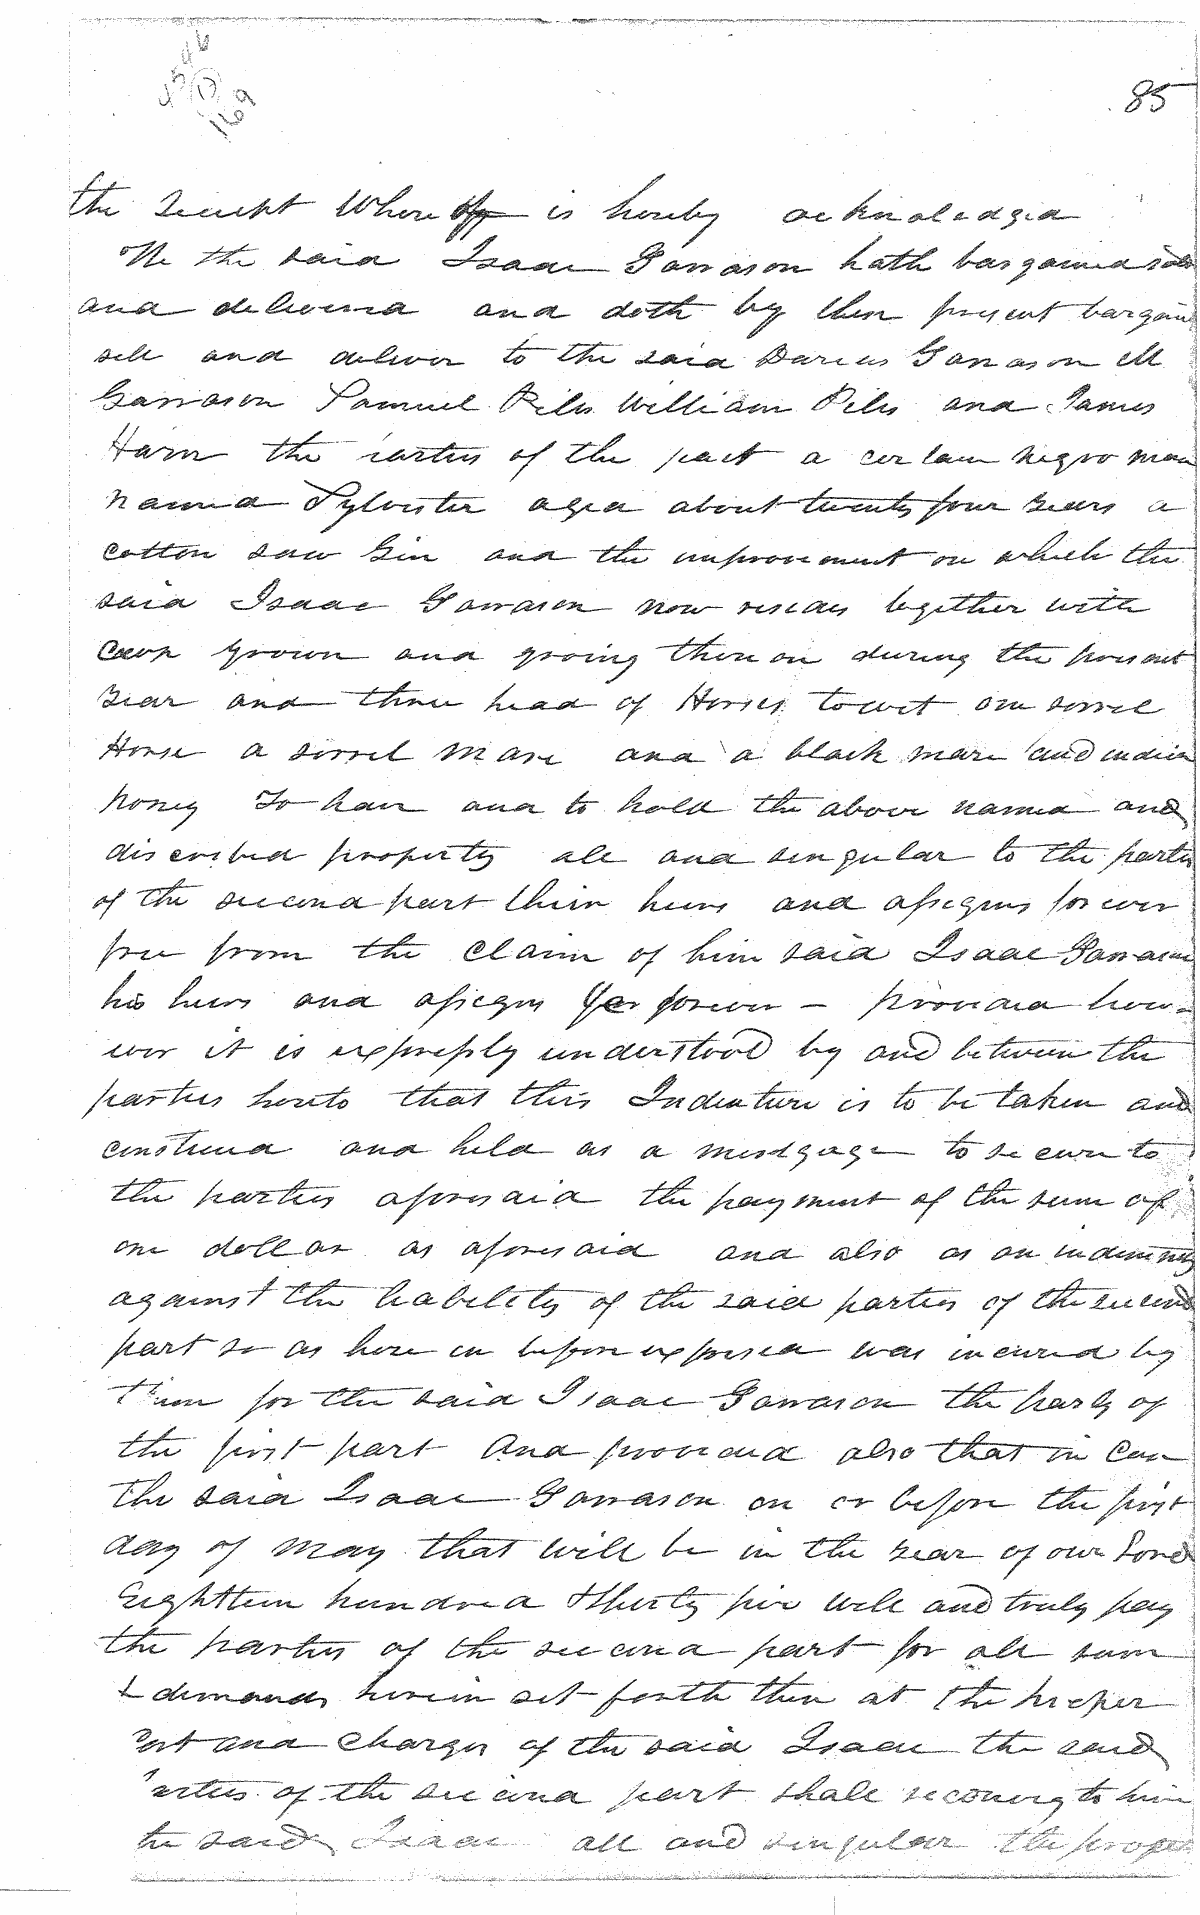 85
the Receipt Whereoff is hereby acknoledged
He the said Isaac Garrason hath bargained sold
and delivered and doth by these present bargain
sell and deliver to the said Darius Garrason M
Garrason Samuel Piles William Piles and James
Harn the parties of the part a certain negro man
named Sylvester aged about twenty four years a
cotton saw Gin and the improvement on which the
said Isaac Garrason now resides together with
Crop grown and groing thereon during the present
year and three head of Horses towit one sorrel
Horse a sorrel mare and a black mare and indian
poney To have and to hold the above named and
discribed property all and singular to the parties
of the second part their heirs and assigns forever
free from the claim of him said Isaac Garrason
his heirs and assigns for forever – provided how-
ever it is expressly understood by and between the
parties hereto that this Indenture is to be taken and
construed and held as a mortgage to secure to
the parties aforesaid the payment of the sum of
one dollar as aforesaid and also as an indemnity
against the liability of the said parties of the second
part so as here in before expressed was incured by
them for the said Isaac Garrason the party of
the first part And provided also that in case
the said Isaac Garrason on or before the first
day of May that will be in the year of our Lord
Eightteen hundred & thirty five will and truly pay
the parties of the second part for all sum
& demands herein set forth then at the proper
cost and charges of the said Isaac the said
parties of the second part shall reconvey to him
the said Isaac all and singular the proper